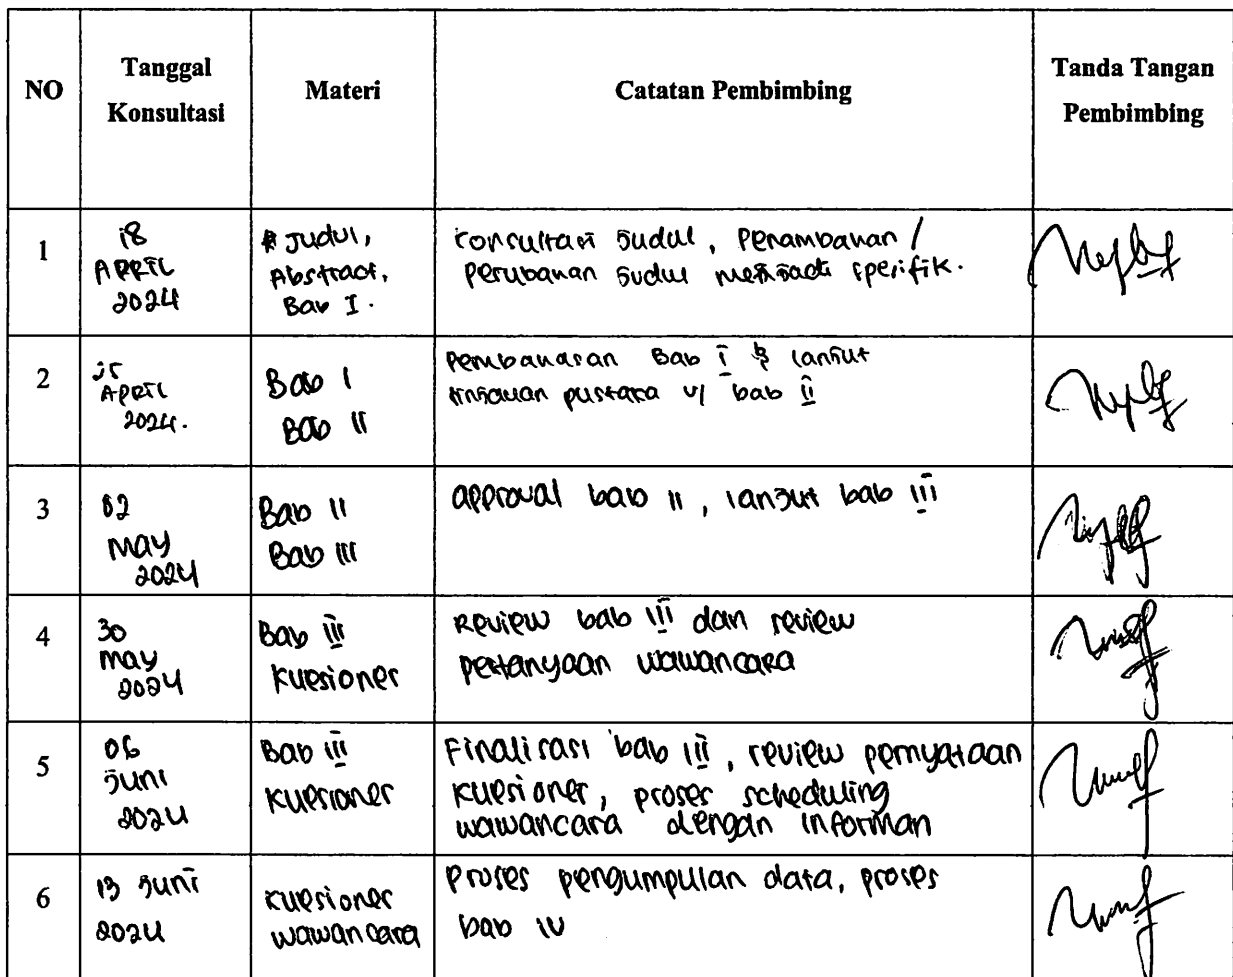 NO Tanggal Konsultasi Materi Catatan Pembimbing Tanda Tangan Pembimbing
1
18
APRIL
2024
Judul,
Abstract,
Bab I.
Konsultasi Judul, Penambahan /
perubahan Judul menjadi spesifik.
2
25
APRIL
2024.
Bab I
Bab II
Pembahasan Bab I & lanjut
tinjauan pustaka u/ bab II
3
02
May
2024
Bab II
Bab III
approval bab II, lanjut bab III
4
30
may
2024
Bab III
Kuesioner
Review bab III dan review
pertanyaan wawancara
5
06
Juni
2024
Bab III
Kuesioner
Finalisasi bab III, review pernyataan
kuesioner, proses scheduling
wawancara dengan informan
6
13 Juni
2024
Kuesioner
wawancara
Proses pengumpulan data, proses
bab IV